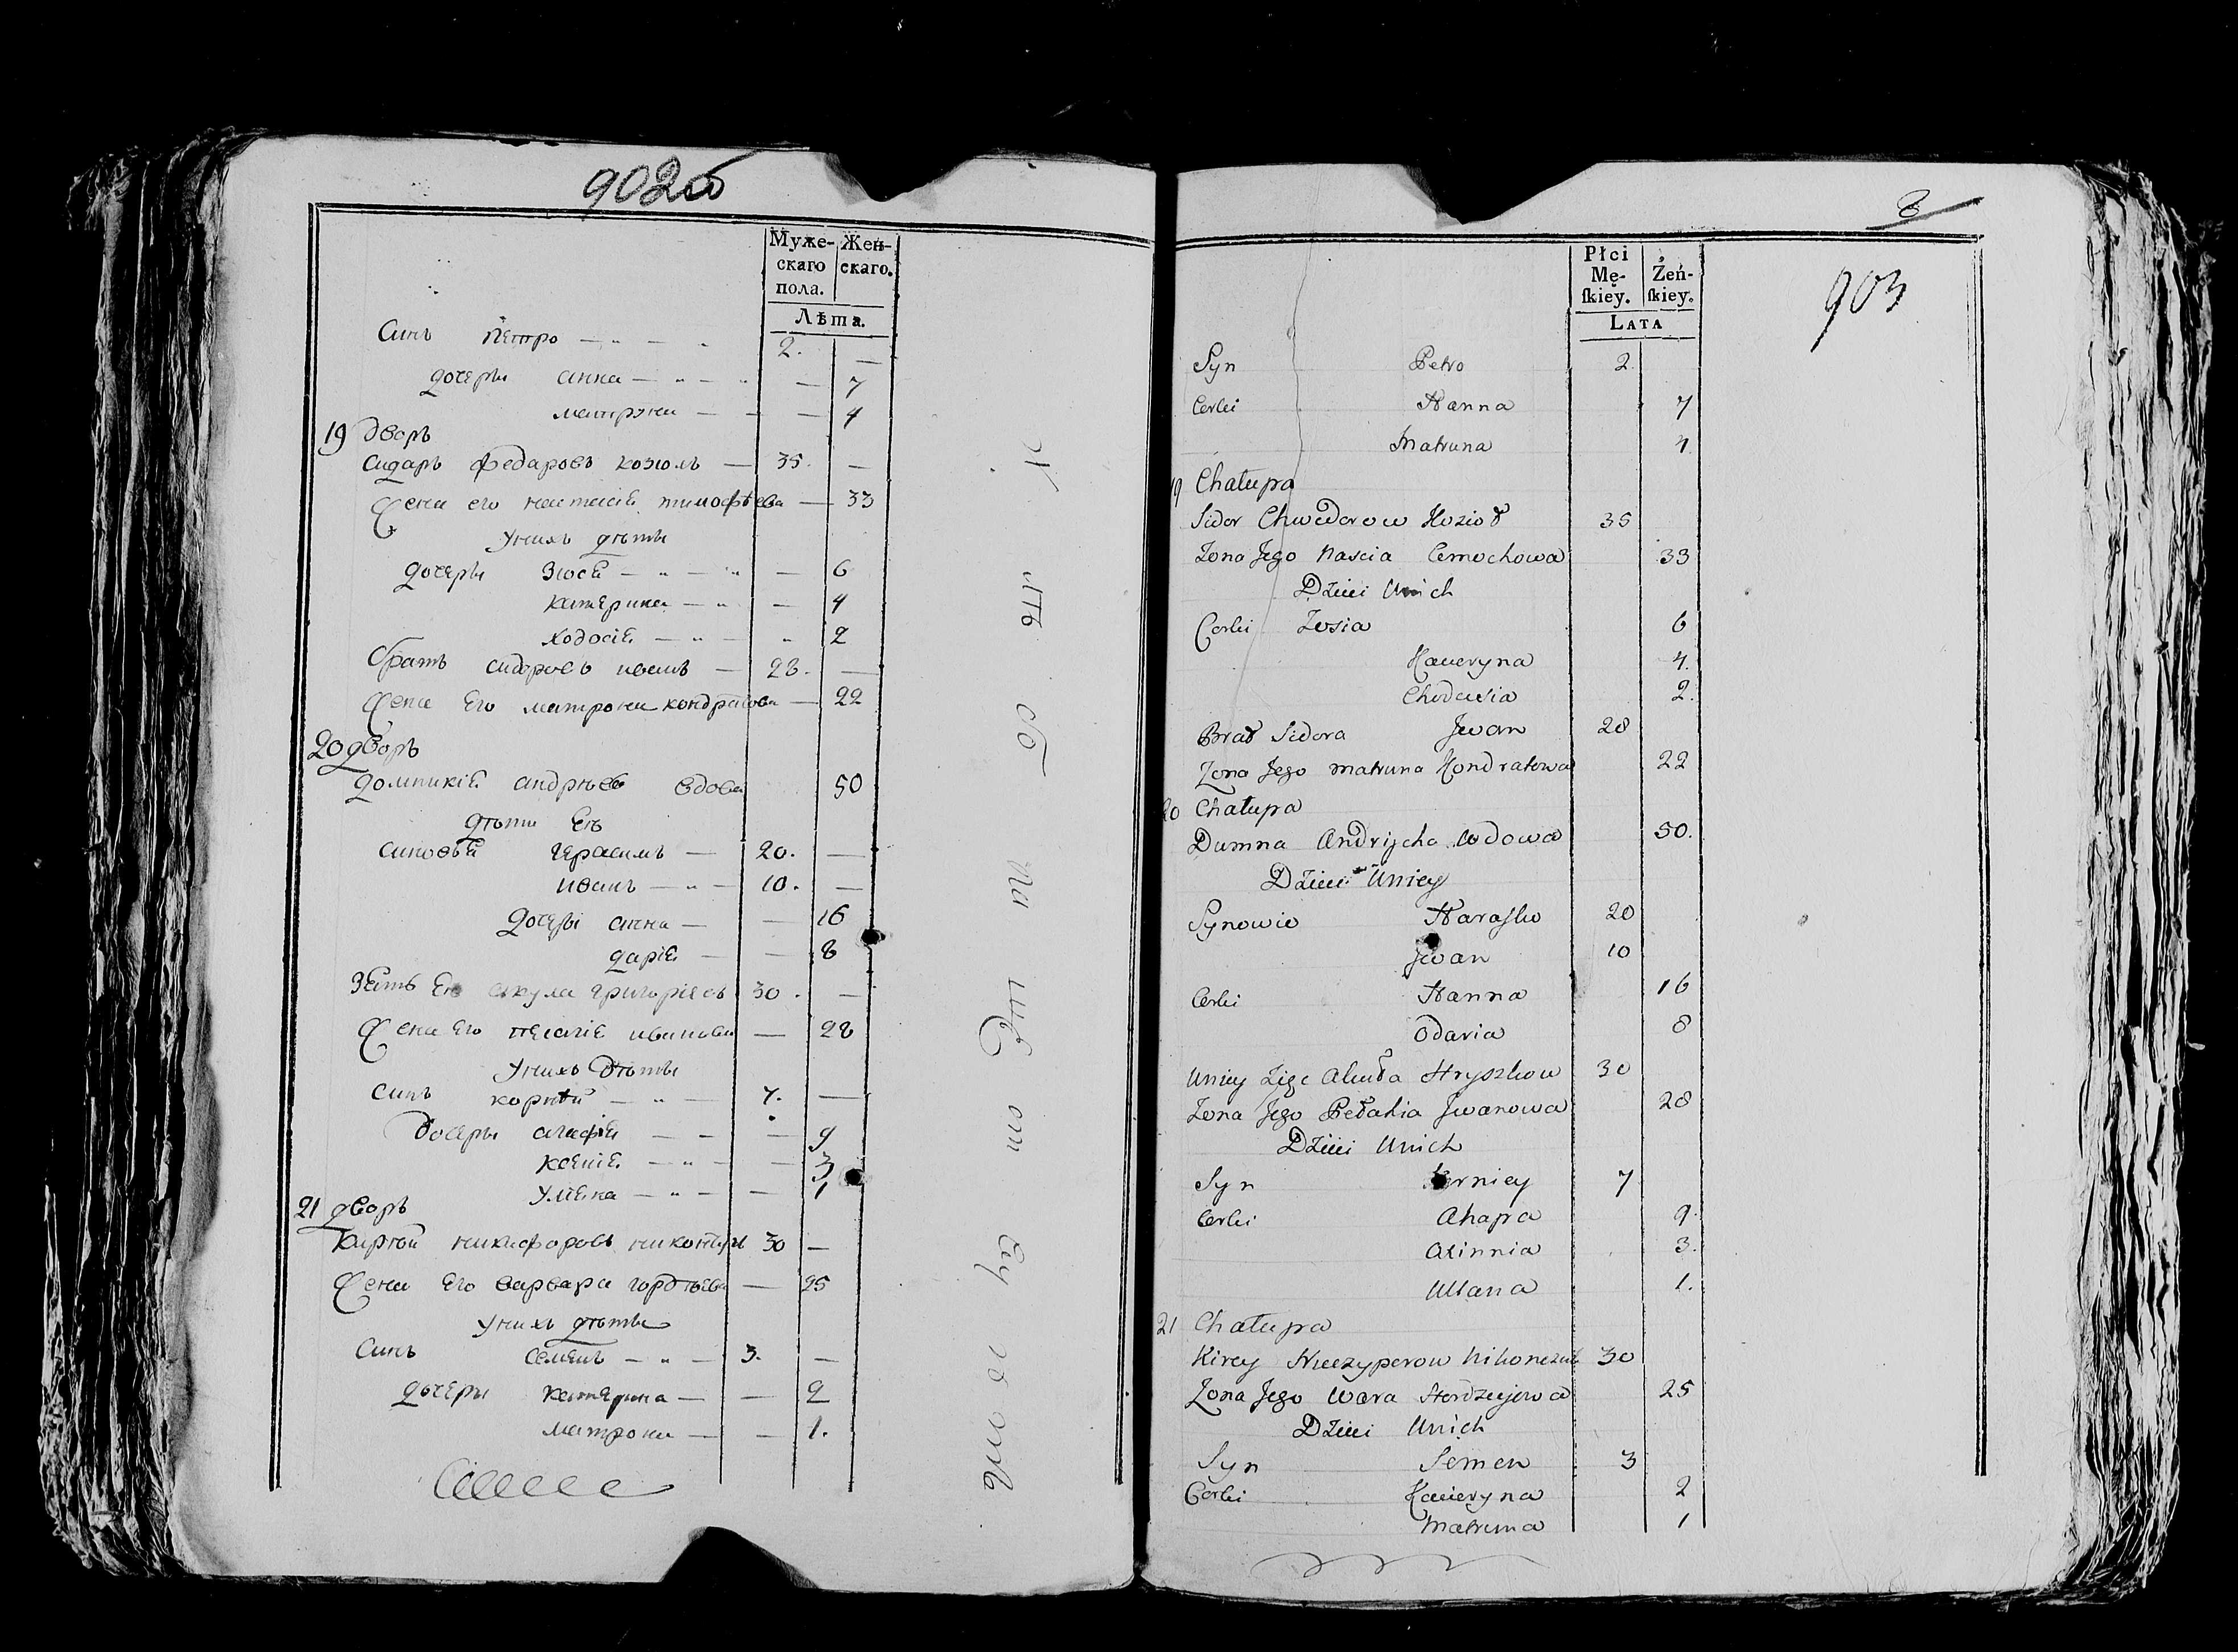 902об
Муже-
скаго
пола.
Жен-
скаго.
Лѣта.
Синъ Петро — „ — „ 2. —
дочеры анна — „ — „ — 7
матруна — — — 4
19 дворъ
Сидаръ федаровъ козюлъ — 35. —
Жена его настасіѣ тимофѣева — 33
Унихъ дѣты
дочеры Зюсѣ — „ — „ — 6
катерина — „ — 4
ходосіѣ — „ — „ 2
братъ сидоровъ иванъ — 28. —
Жена Его матрона кондратова — 22
20 дворъ
домникіѣ андрѣева вдова 50
дѣти Еѣ
синовья герасимъ — 20. —
иванъ — „ — 10. —
дочери анна — — 16
даріѣ — — 8
Зять Еѣ акула григоріевъ 30. —
Жена Его пелагіѣ иванова — 28
Унихъ дѣты
Синъ корнѣй — „ — 7. —
дочеры агафіѣ — — — 9
ксеніѣ — „ — — 3
Улѣна — „ — — 1
21 дворъ
Кирѣй никифоровъ 30 —
Жена Его варвара гордѣева — 25
Унихъ дѣты
Синъ Семенъ — „ — 3. —
дочеры катерина — — 2
матрона — — 1.
3
903
Płci
Mę-
ſkiey.
Żeń-
ſkiey.
LATA
Syn Petro 2
Corki Hanna 7
Matruna 4
19 Chałupa
Sidor Chwedorow Kozioł 35
Zona Jego Nascia Cemochowa 33
Dzieci Unich
Corki Zosia 6
Kateryna 4.
Chodosia 2.
Brat Sidora Jwan 28
Zona Jego Matruna Kondratowa 22
20 Chałupa
Dumna Andrijcha Wdowa 50.
Dzieci Uniey
Synowie Harasko 20
Jwan 10
Corki Hanna 16
Odaria 8
Uniey Zięc Akuła Hryszkow 30
Zona Jego Pełahia Jwanowa 28
Dzieci Unich
Syn Korniey 7
Corki Ahapa 9.
Axinnia 3.
Ulana 1.
21 Chałupa
Kirey Nieczyperow Nikonczuk 30
Zona Jego Wara Hordziejowa 25
Dzieci Unich
Syn Semen 3
Corki Kateryna 2
Matruna 1